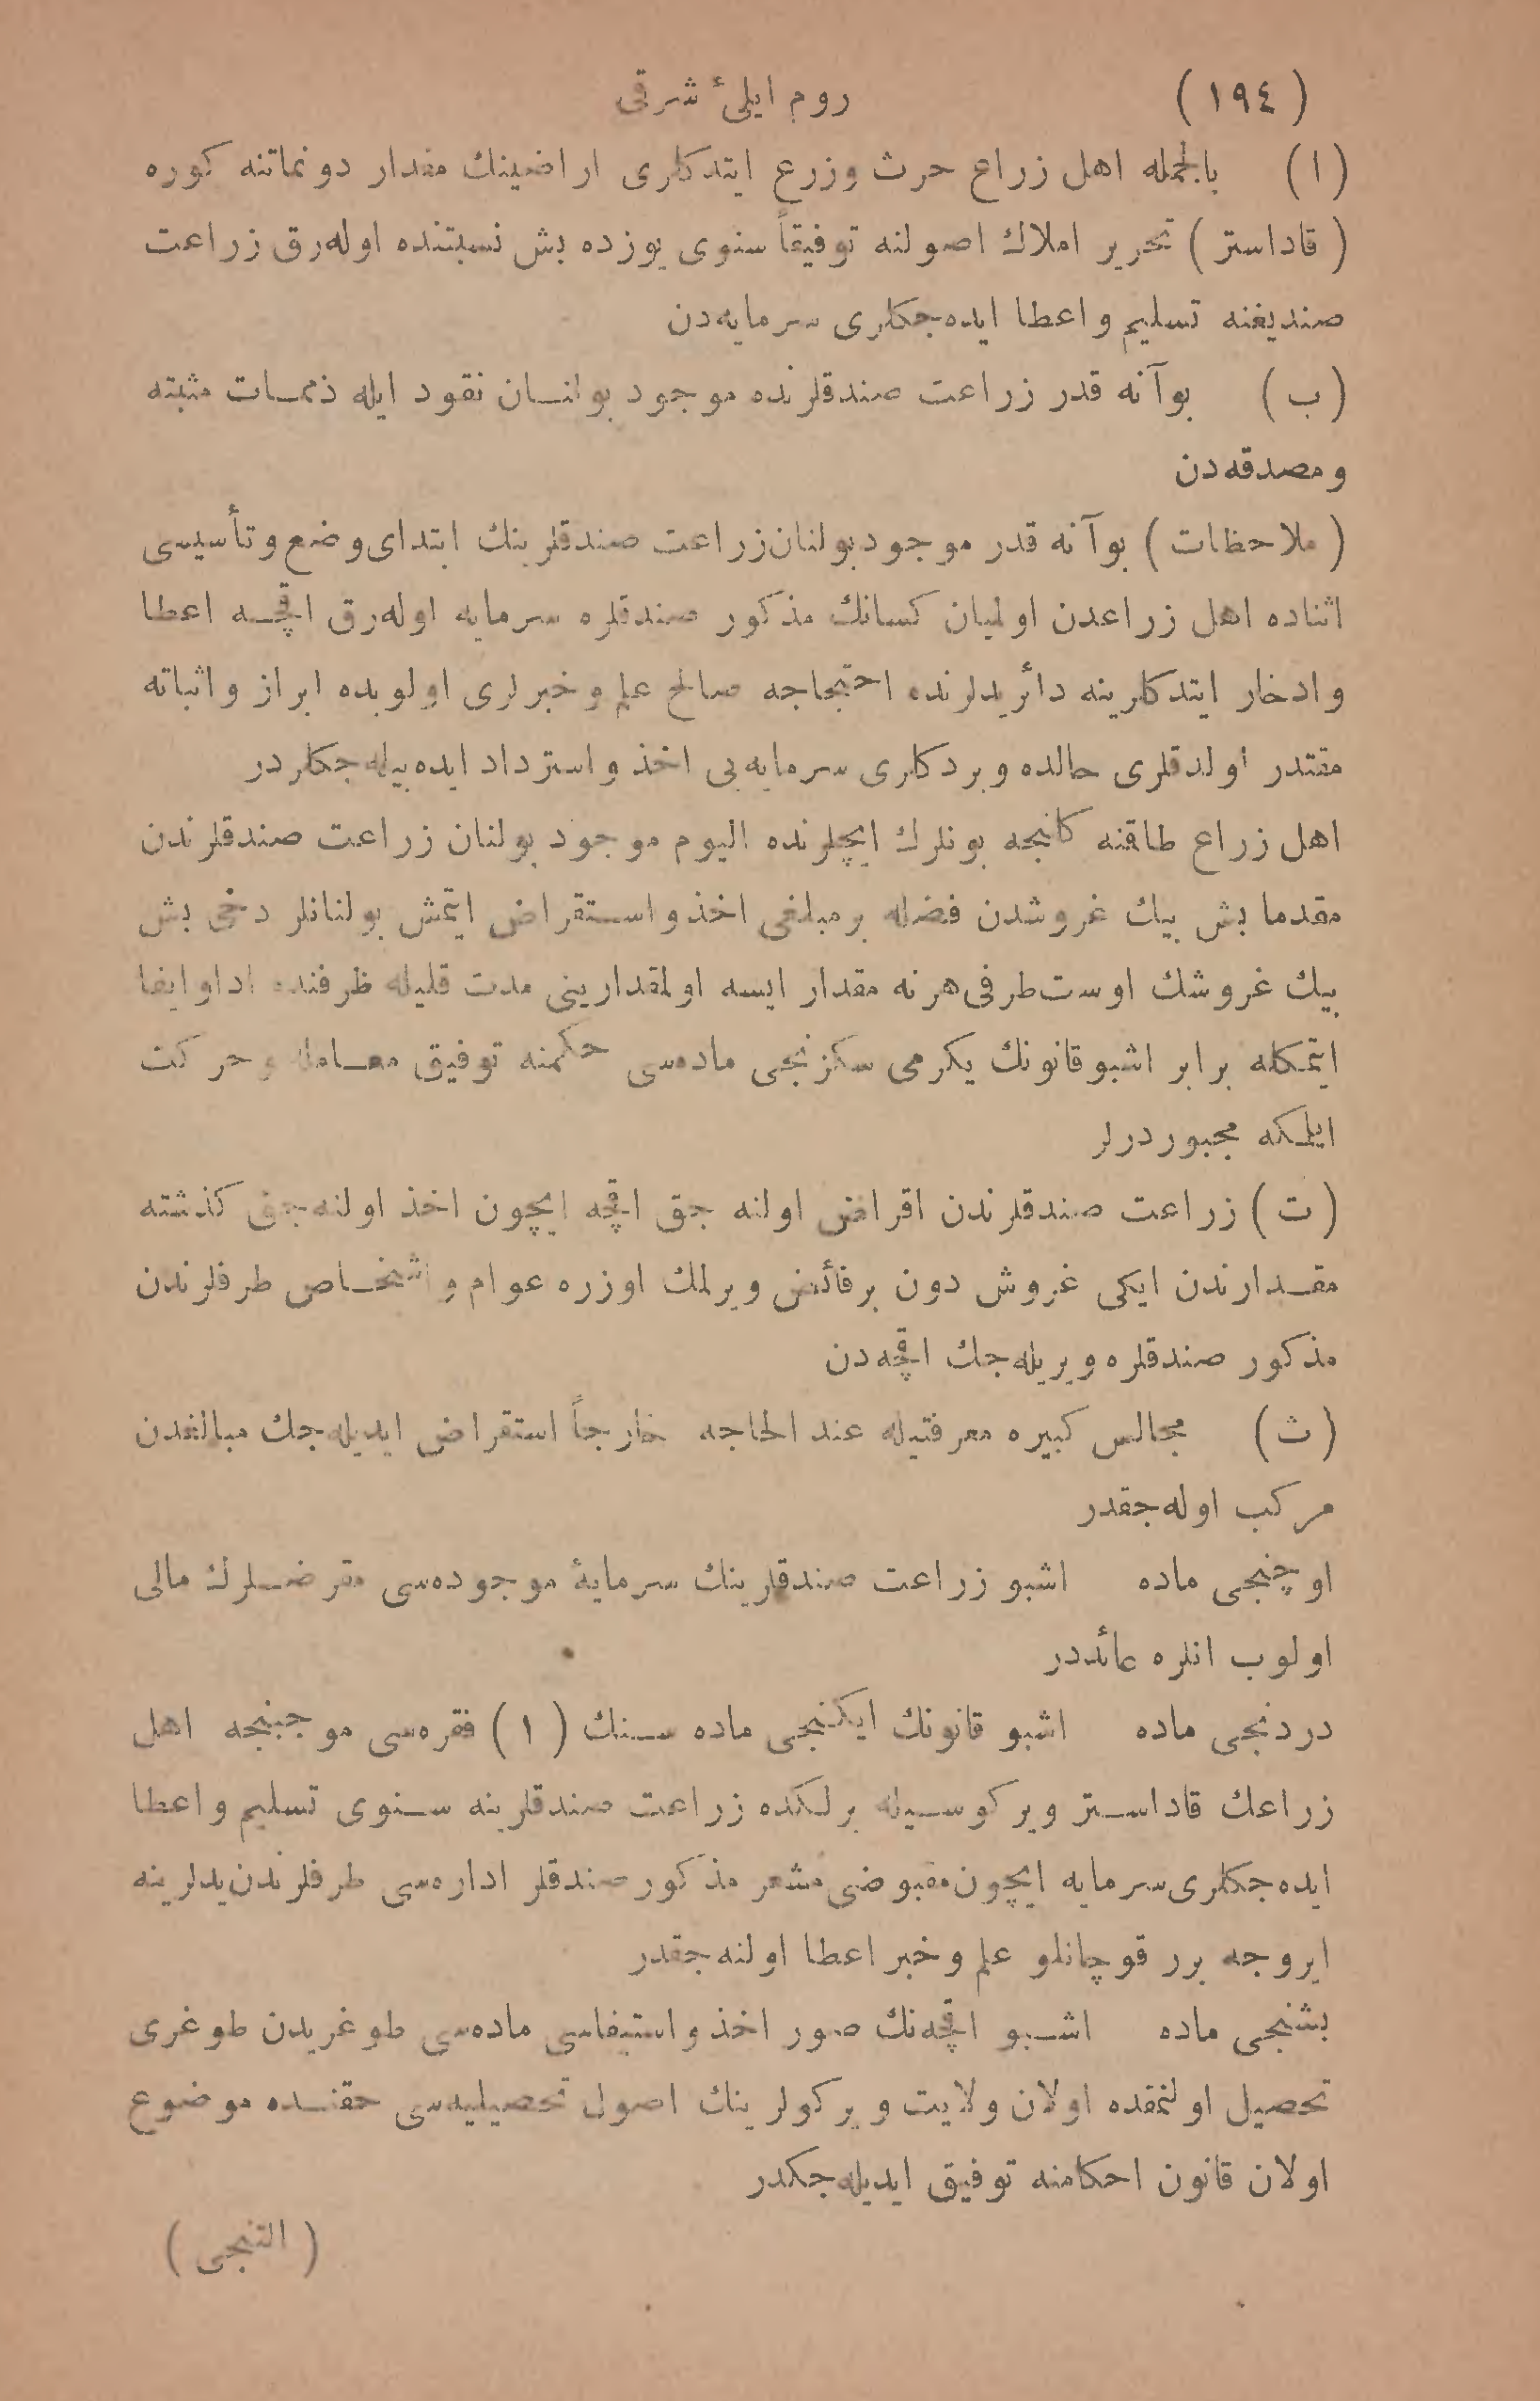 (١٩٤) روم ايلئ شرقى
(ا) بالجمله اهل زراع حرث وزرع ايتدكلرى اراضينك مقدار دونماتنه كوره
(قاداستر) تحرير املاك اصولنه توفيقاً سنوى يوزده بش نسبتنده اوله‌رق زراعت
صنديغنه تسليم واعطا ايده‌جكلرى سرمايه‌دن
(ب) بوآنه قدر زراعت صندقلرنده موجود بولنان نقود ايله ذممات مثبته
ومصدقه‌دن
(ملاحظات) بوآنه قدر موجود بولنان زراعت صندقلرينك ابتداى وضع وتأسيسى
اثناده اهل زراعدن اولميان كسانك مذكور صندقلره سرمايه اوله‌رق اقچه اعطا
وادخار ايتدكلرينه دائر يدلرنده احتجاجه صالح علم وخبرلرى اولوبده ابراز واثباته
مقتدر اولدقلرى حالده ويردكلرى سرمايه‌يى اخذ واسترداد ايده‌بيله‌جكلردر
اهل زراع طاقنه كلنجه بونلرك ايچلرنده اليوم موجود بولنان زراعت صندقلرندن
مقدما بش بيك غروشدن فضله برمبلغى اخذ واستقراض ايتمش بولنانلر دخى بش
بيك غروشك اوست طرفى هرنه مقدار ايسه اولمقدارينى مدت قليله ظرفنده اداوايفا
ايتمكله برابر اشبوقانونك يكرمى سكزنجى ماده‌سى حكمنه توفيق معامله وحركت
ايلمكه مجبوردرلر
(ت) زراعت صندقلرندن اقراض اولنه جق اقچه ايچون اخذ اولنه‌جق كذشته
مقدارندن ايكى غروش دون برفائض ويرلمك اوزره عوام واشخاص طرفلرندن
مذكور صندقلره ويريله‌جك اقچه‌دن
(ث) مجالس كبيره معرفتيله عند الحاجه خارجاً استقراض ايديله‌جك مبالغدن
مركب اوله‌جقدر
اوچنجى ماده اشبو زراعت صندقلرينك سرمايۀ موجوده‌سى مقرضلرك مالى
اولوب انلره عائددر
دردنجى ماده اشبو قانونك ايكنجى ماده سنك (ا) فقره‌سى موجبنجه اهل
زراعك قاداستر ويركوسيله برلكده زراعت صندقلرينه سنوى تسليم واعطا
ايده‌جكلرى سرمايه ايچون مقبوضى مشعر مذكور صندقلر اداره‌سى طرفلرندن يدلرينه
ايروجه برر قوچانلو علم وخبر اعطا اولنه‌جقدر
بشنجى ماده اشبو اقچه‌نك صور اخذ واستيفاسى ماده‌سى طوغريدن طوغرى
تحصيل اولنمقده اولان ولايت ويركولرينك اصول تحصيليه‌سى حقنده موضوع
اولان قانون احكامنه توفيق ايديله‌جكدر
(التنجى)